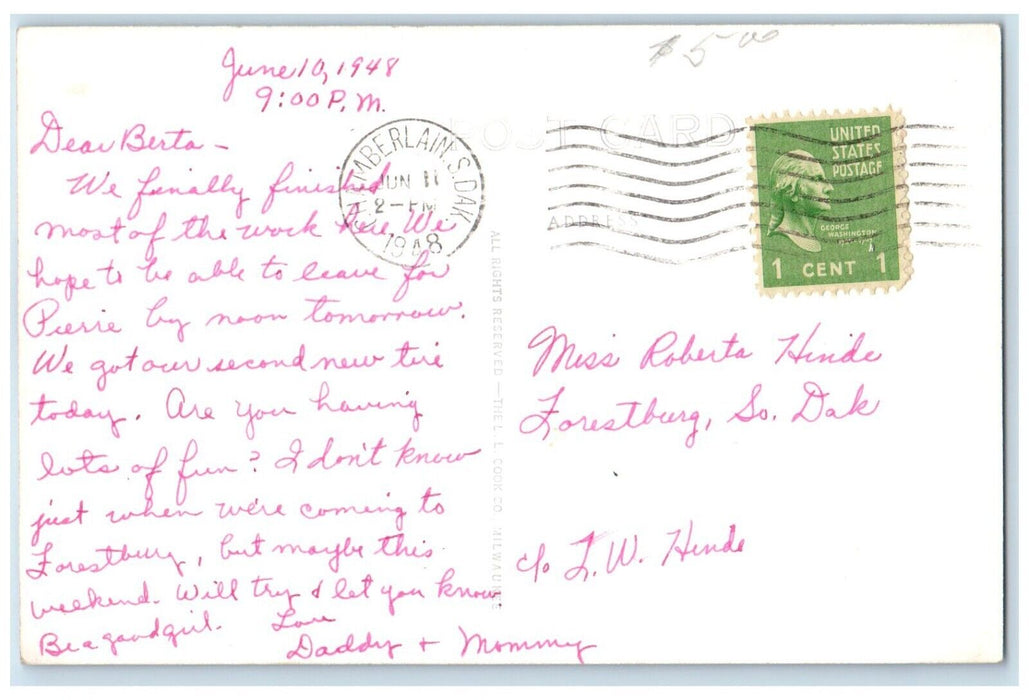 $5.00
June 10, 1948
9:00 P.M.
Dear Berta -
We finally finished
most of the work here. We
hope to be able to leave for
Pierre by noon tomorrow.
We got our second new tire
today. Are you having
lots of fun? I don't know
just when we're coming to
Forestburg, but maybe this
weekend. Will try & let you know
Be a good girl. Love
Daddy + Mommy
CHAMBERLAIN, S. DAK
JUN 11
2-PM
1948
POST CARD
ADDRESS
ALL RIGHTS RESERVED — THE L. L. COOK CO. MILWAUKEE
UNITED
STATES
POSTAGE
GEORGE
WASHINGTON
1 CENT 1
Miss Roberta Hinde
Forestburg, So. Dak
c/o L. W. Hinde